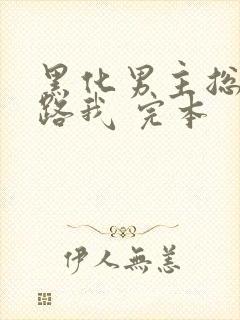 黑化男主总
路我 完本
伊人無恙